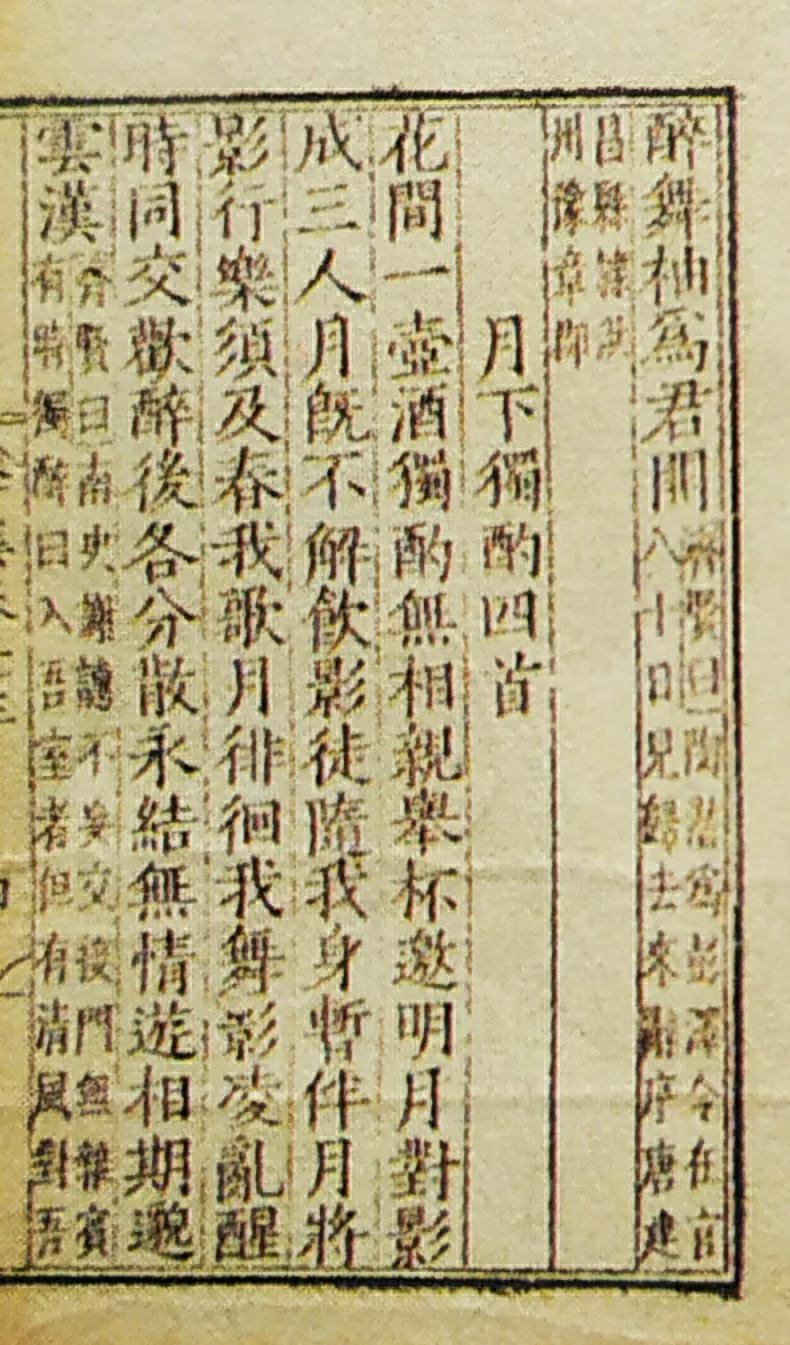 醉舞袖爲君開
齊賢曰陶爲彭澤令在官
八十日見歸去來辭序唐建
昌縣隸洪
州豫章郡
月下獨酌四首
花間一壺酒獨酌無相親舉杯邀明月對影
成三人月旣不解飲影徒隨我身暫伴月將
影行樂須及春我歌月徘徊我舞影凌亂醒
時同交歡醉後各分散永結無情遊相期邈
雲漢
齊賢曰南史謝譓不妄交接門無雜賓
有時獨醉曰入吾室者但有清風對吾